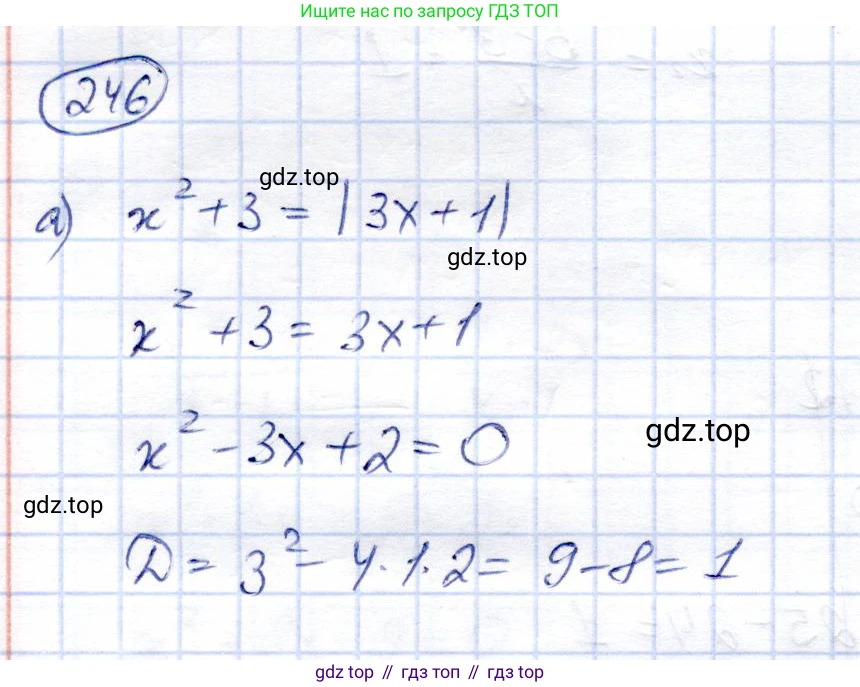 Ищите нас по запросу ГДЗ ТОП
246
gdz.top
а) x² + 3 = |3x + 1|
gdz.top
x² + 3 = 3x + 1
x² - 3x + 2 = 0
gdz.top
gdz.top
D = 3² - 4·1·2 = 9 - 8 = 1
gdz top // гдз топ // gdz top